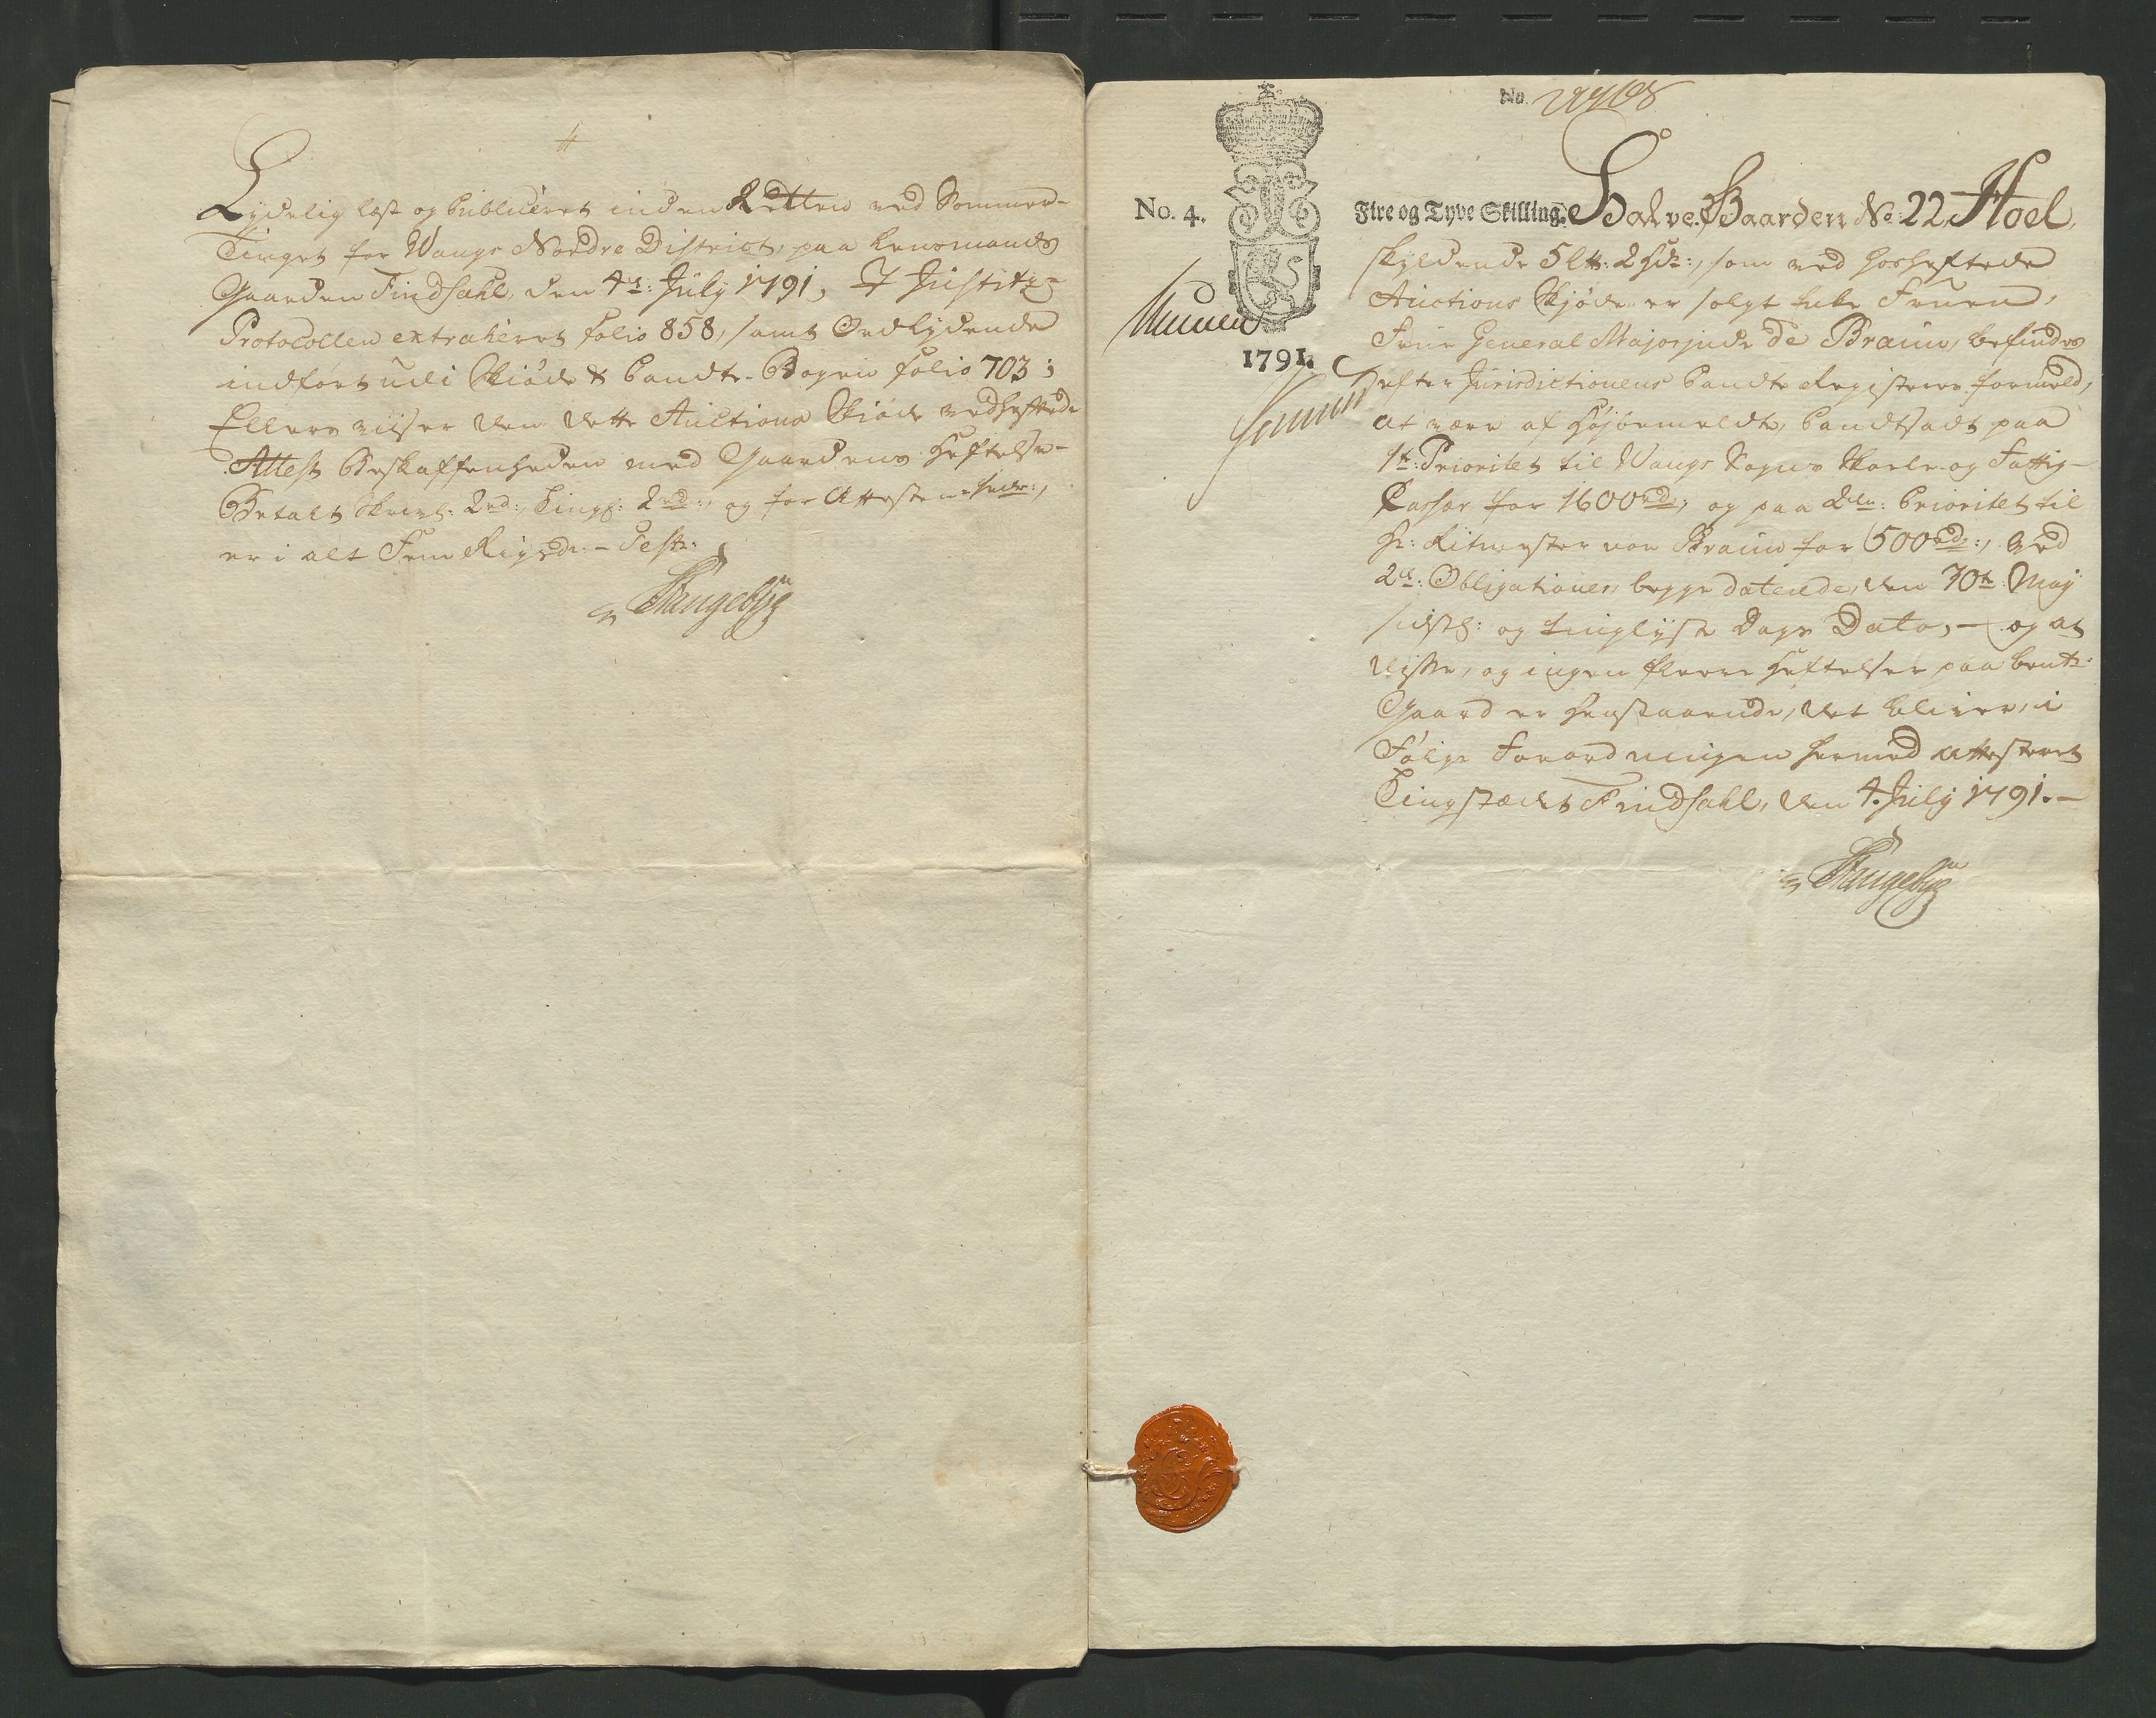 Lydelig læst og Publiceret inden Retten ved Sommer-
Tinget for Wangs Nordre District, paa Lensmands
Gaarden Findsahl, den 4de: July 1791, I Justitz
Protocollen extraheret folio 858, samt Ordlydende
indført udi Skiøde & Pandte-Bogen folio 703;
Ellers viiser den dette Auctions Skiøde vedheftede
Attest Beskaffenheden med Gaardens Heftelse-
Betalt Skriv: 2rd:, Tingl: 2rd:, og for Attesten 1rdr:,
er i alt Fem Rigsdr: - Test:
Stangebye
No.
No. 4.
Fire og Tyve Skilling.
1791.
Halve Gaarden No: 22, Hoel,
skyldende 5 Lb: 2 Hdr:, som ved hosheftede
Auctions Skjøde er solgt til Fruen,
Frue General Majorinde De Braun, befindes
efter Jurisdictionens Pandte Registers formeld,
at være af Højbemeldte, Pandtsadt paa
1te: Prioritet til Wangs Sogns Skole- og Fattig-
Casser for 1600rd:, og paa 2den: Prioritet til
Hr: Ritmester von Braun for 500rd:, ved
2de: Obligationer, begge daterede, den 30te: May
sidstl: og tinglyst Dags Dato, - og at
disse, og ingen fleere Heftelser paa bemte:
Gaard er henstaaende, det bliver, i
Følge Forordningen hermed attesteret
Tingstædet Findsahl, den 4. July 1791. -
Stangebye